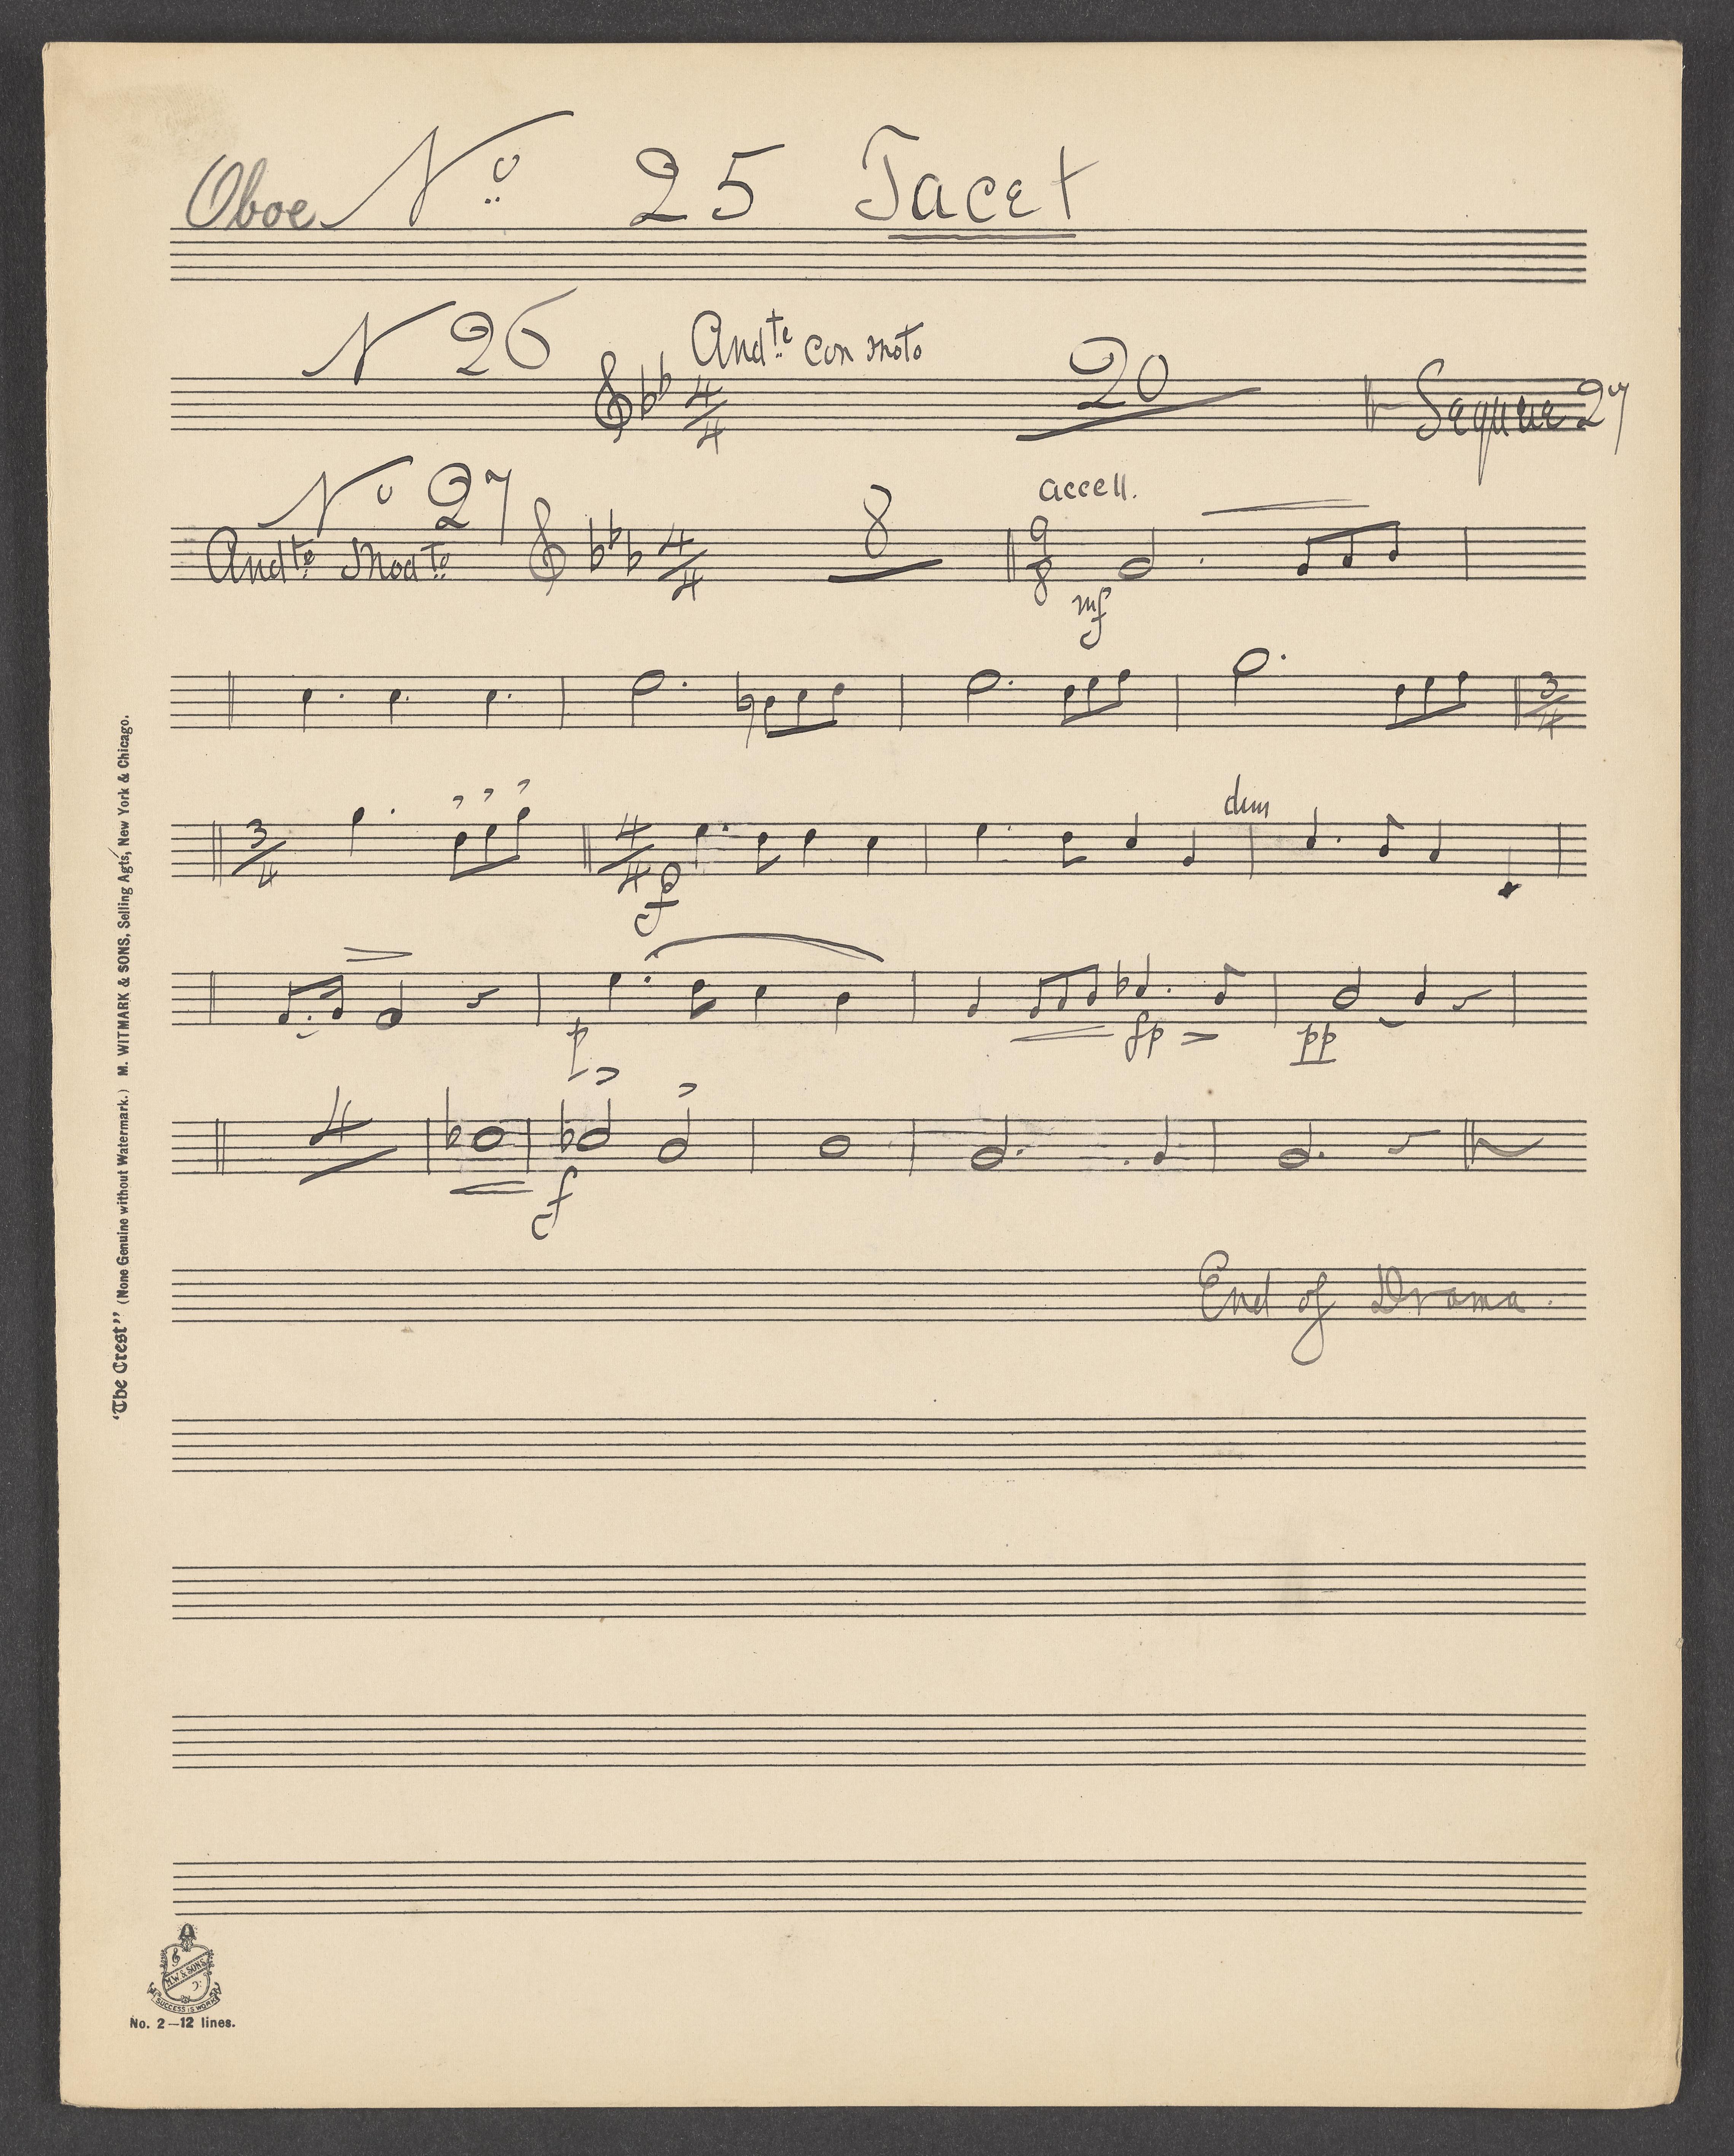 Oboe Nº 25 Tacet
N 26 Andte con moto
4/4 20 Segue 27
Nº 27 accell.
Andte Modto 4/4 8 9/8
mf
3/4
dim
3/4 4/4
f
p fp pp
4
f
End of Drama.
"The Crest" (None Genuine without Watermark.) M. WITMARK & SONS, Selling Agts, New York & Chicago.
M.W. & SONS
SUCCESS IS WORK
No. 2—12 lines.